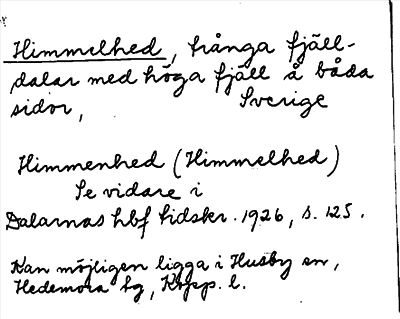 Himmelhed, trånga fjäll-
dalar med höga fjäll å båda
sidor, Sverige
Himmenhed (Himmelhed)
Se vidare i
Dalarnas hbf tidskr. 1926, s. 125.
Kan möjligen ligga i Husby sn,
Hedemora tg, Kopp. l.